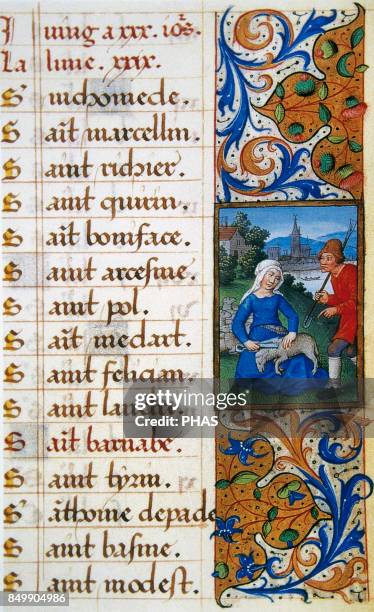 Juing a xxx. iours.
La lune. xxix.
S nichomede.
S ait marcellin.
S aint richier.
S aint quirin.
S ait boniface.
S aint
S aint pol.
S ait medart.
S aint felician.
S aint
S ait barnabe.
S aint
S athoine de pade
S aint basine.
S aint modest.
gettyimages
PHAS
Credit: PHAS
849904986